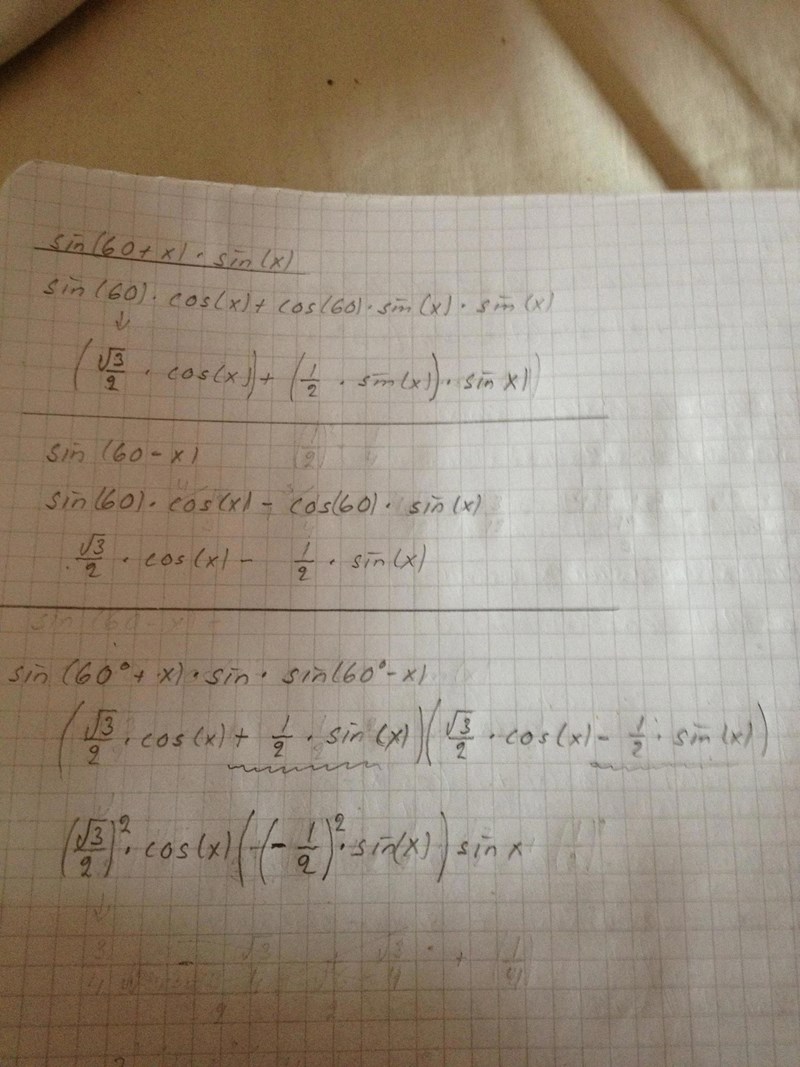 sin(60+x)·sin(x)
sin(60)·cos(x)+cos(60)·sin(x)·sin(x)
↓
(√3/2·cos(x))+(1/2·sin(x))·sin x)
sin(60-x)
sin(60)·cos(x)-cos(60)·sin(x)
√3/2·cos(x)-1/2·sin(x)
sin(60-x)
sin(60°+x)·sin·sin(60°-x)
(√3/2·cos(x)+1/2·sin(x))(√3/2·cos(x)-1/2·sin(x))
(√3/2)²·cos(x)(-(-1/2)²·sin(x))sin x
↓